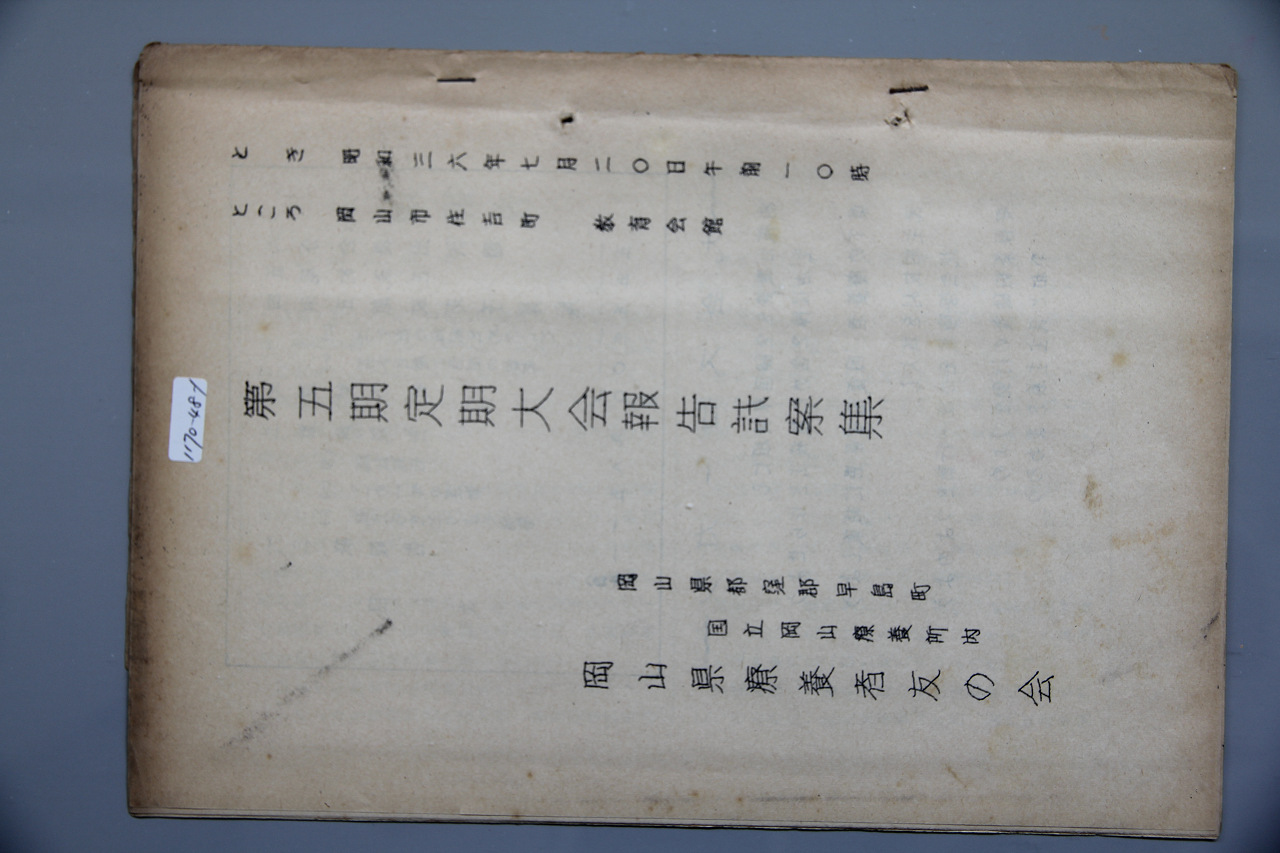 とき 昭和三六年七月二〇日午前一〇時
ところ 岡山市住吉町 教育会館
第五期定期大会報告議案集
岡山県都窪郡早島町
国立岡山療養所内
岡山県療養者友の会
1170-48-1